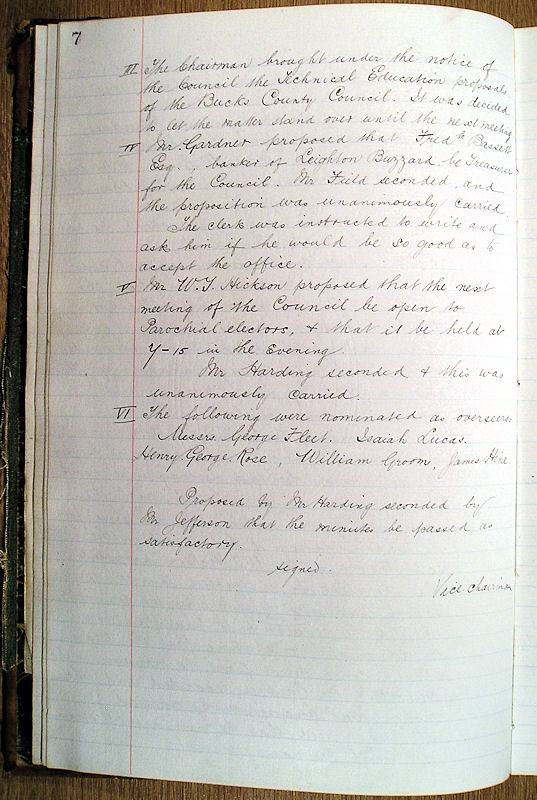 7
III The Chairman brought under the notice of
the Council the Technical Education proposals
of the Bucks County Council. It was decided
to let the matter stand over until the next meeting.
IV Mr. Gardner proposed that Fredk Bassett
Esq., banker of Leighton Buzzard, be Treasurer
for the Council. Mr Field seconded, and
the proposition was unanimously carried.
The clerk was instructed to write and
ask him if he would be so good as to
accept the office.
V Mr W. J. Hickson proposed that the next
meeting of the Council be open to
Parochial electors, & that it be held at
7-15 in the Evening.
Mr Harding seconded & this was
unanimously carried.
VI The following were nominated as overseers:
Messrs. George Fleet. Isaiah Lucas.
Henry George Rose, William Groom, James Hine.
Proposed by Mr Harding seconded by
Mr Jefferson that the minutes be passed as
satisfactory.
signed.
Vice chairman